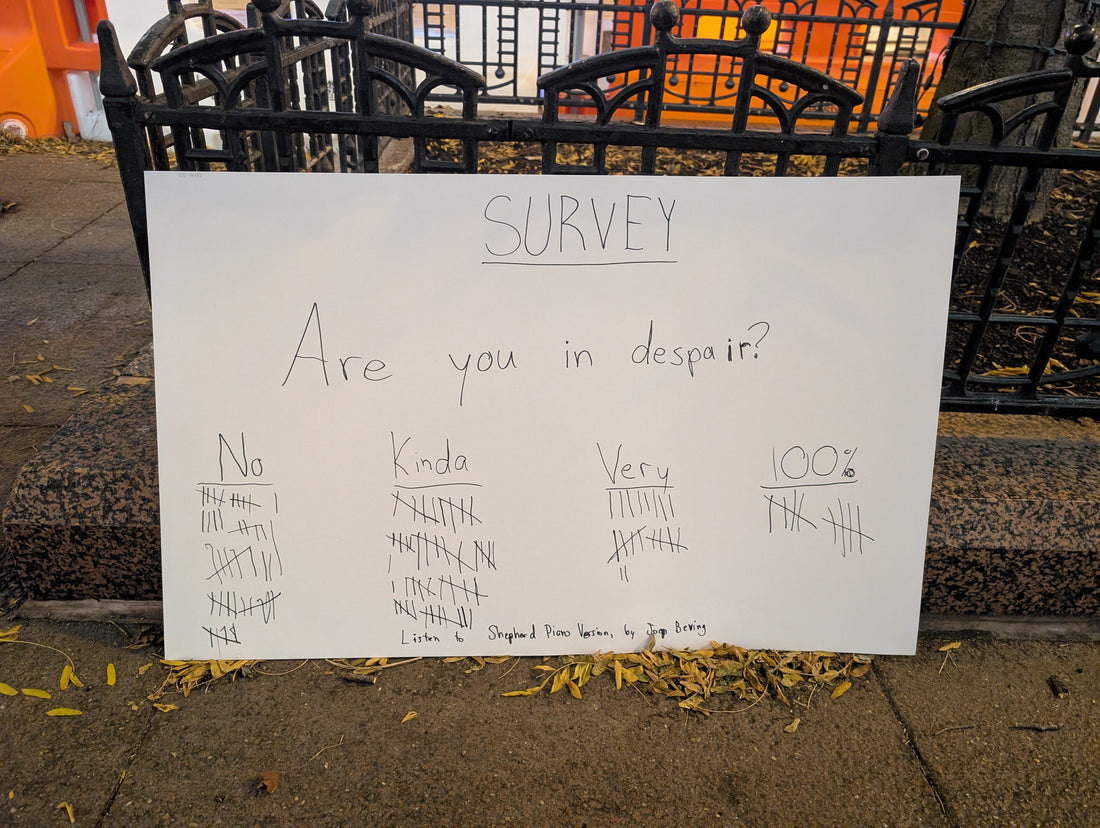 SURVEY
Are you in despair?
No Kinda Very 100%
Listen to Shepherd Piano Version, by Joep Beving